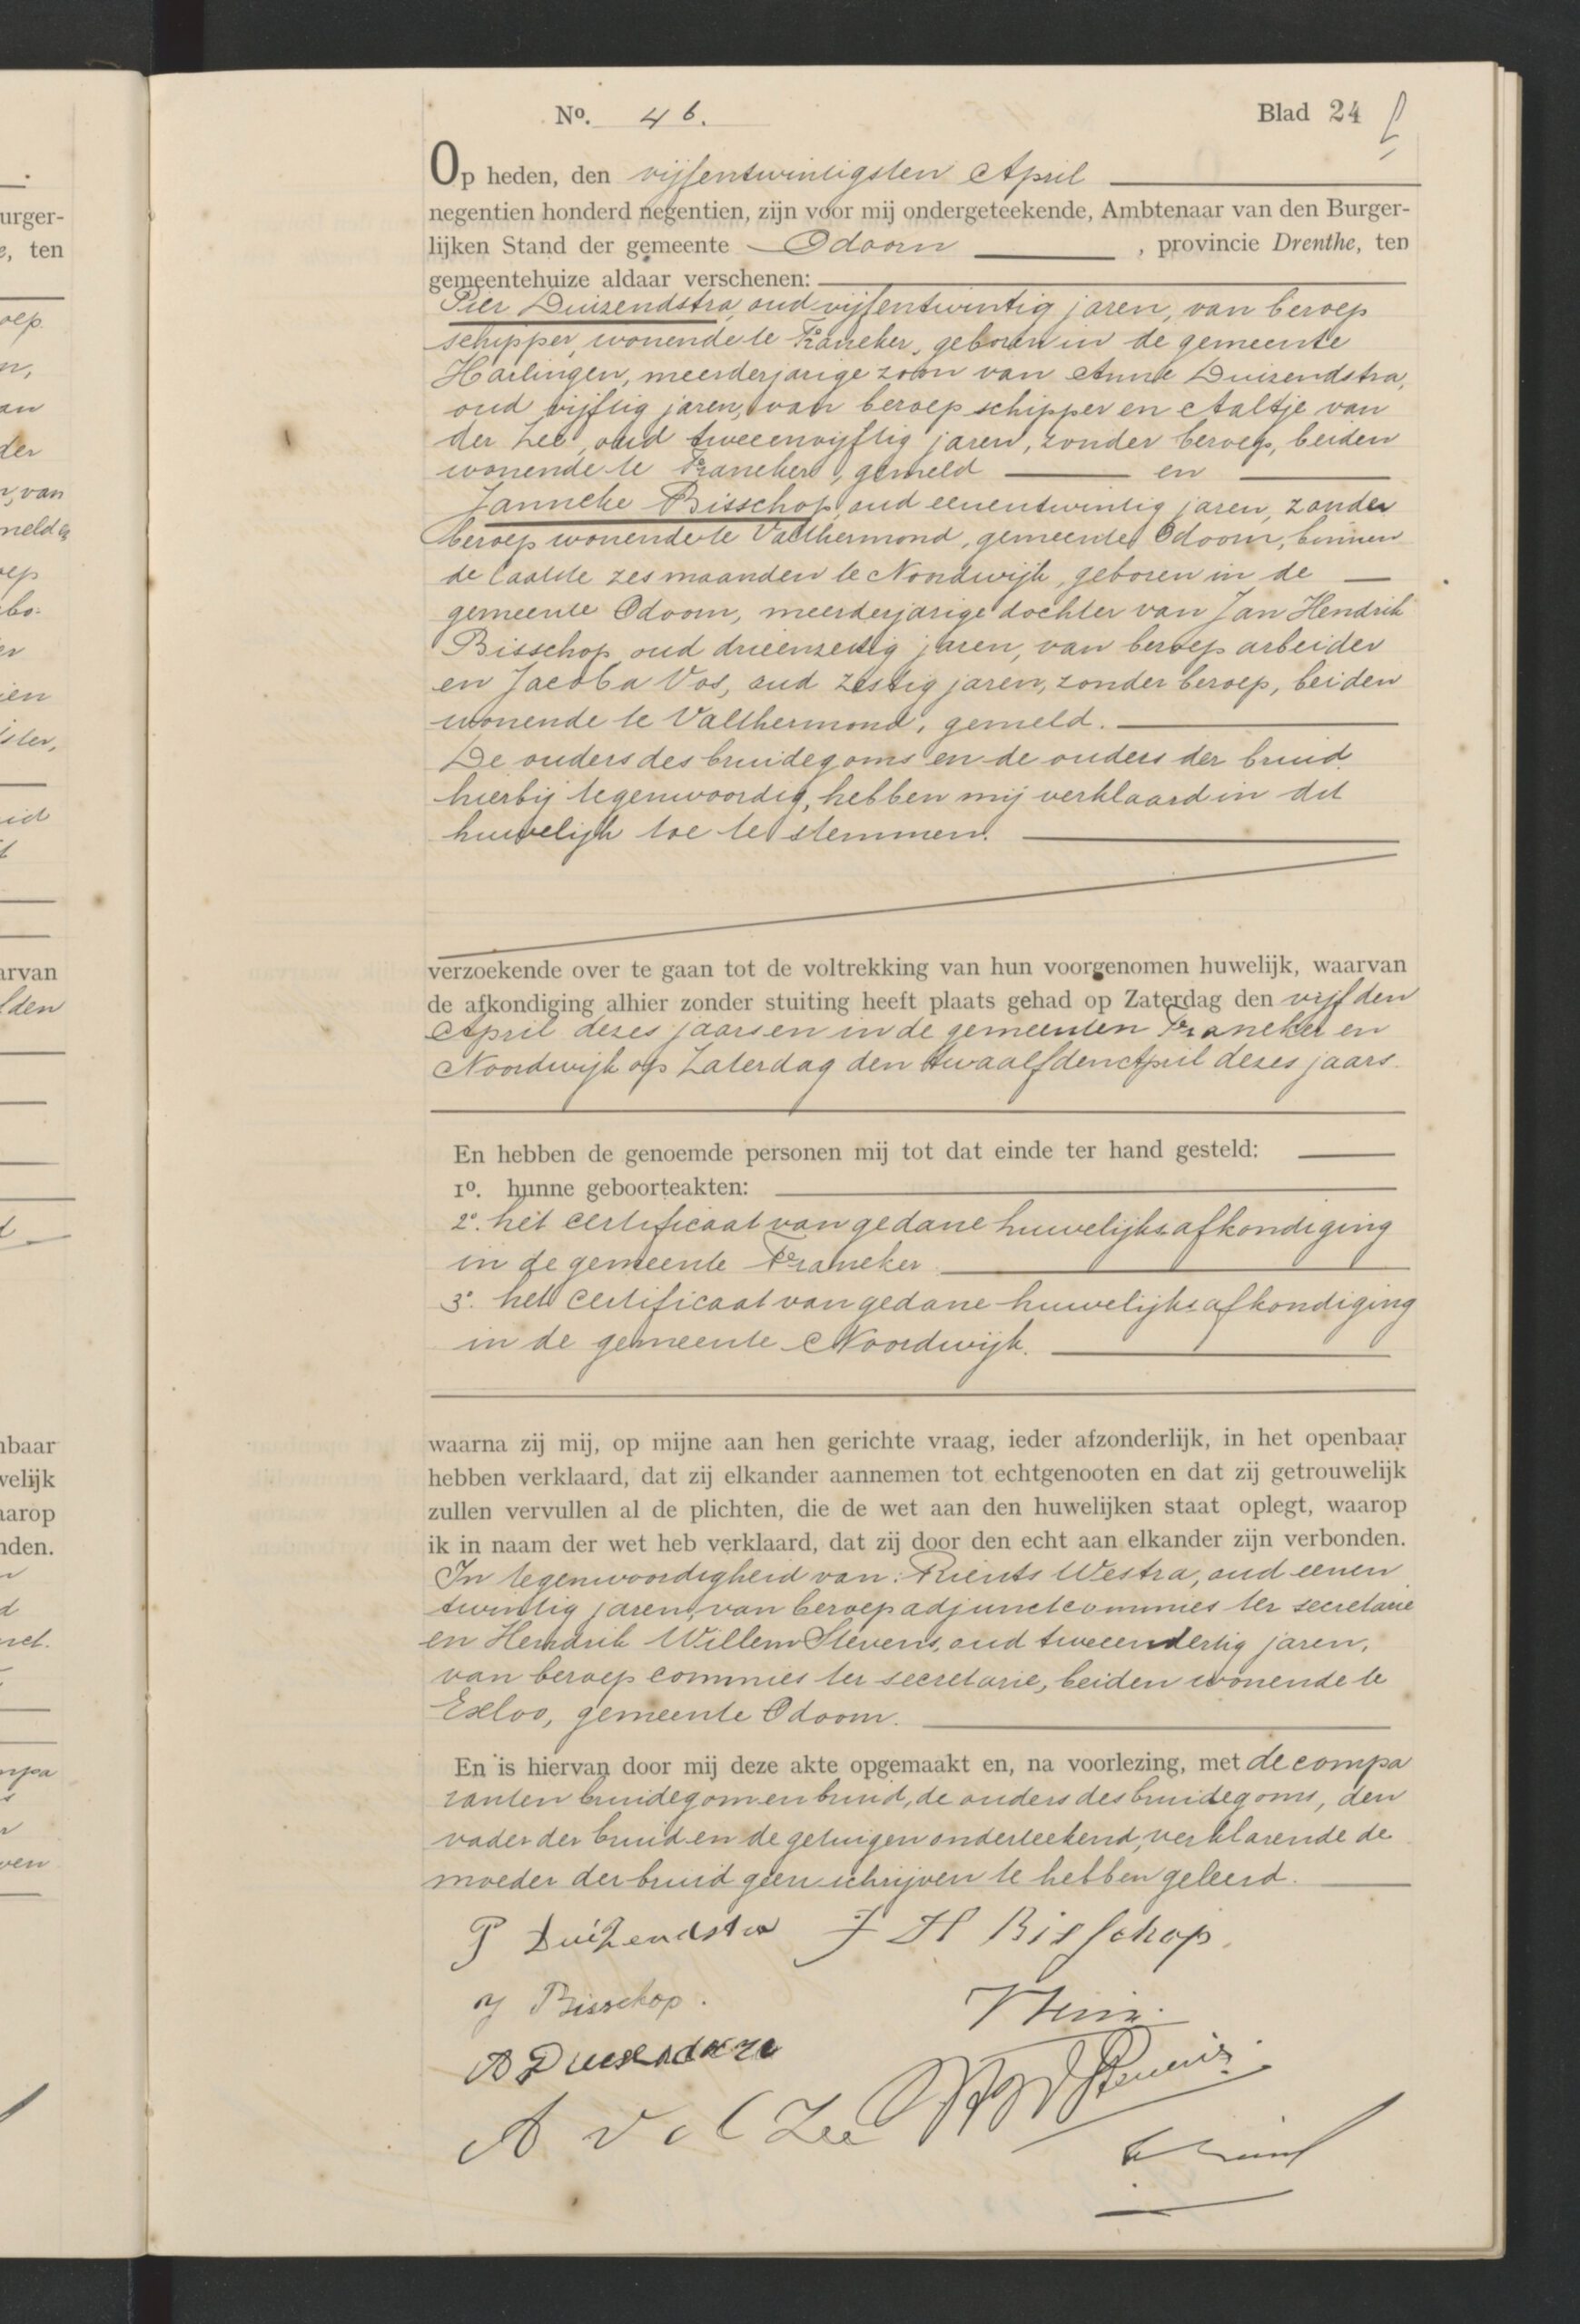 No. 46.
Blad 24
Op heden, den vijfentwintigsten April
negentien honderd negentien, zijn voor mij ondergeteekende, Ambtenaar van den Burger-
lijken Stand der gemeente Odoorn, provincie Drenthe, ten
gemeentehuize aldaar verschenen:
Pier Duizendstra, oud vijfentwintig jaren, van beroep
schipper, wonende te Franeker, geboren in de gemeente
Harlingen, meerderjarige zoon van Anne Duizendstra,
oud vijftig jaren, van beroep schipper en Aaltje van
der Zee, oud tweeenvijftig jaren, zonder beroep, beiden
wonende te Franeker, gemeld en
Janneke Bisschop, oud eenentwintig jaren, zonder
beroep wonende te Valthermond, gemeente Odoorn, binnen
de laatste zes maanden te Noordwijk, geboren in de
gemeente Odoorn, meerderjarige dochter van Jan Hendrik
Bisschop oud drieenzestig jaren, van beroep arbeider
en Jacoba Vos, oud zestig jaren, zonder beroep, beiden
wonende te Valthermond, gemeld.
De ouders des bruidegoms en de ouders der bruid
hierbij tegenwoordig, hebben mij verklaard in dit
huwelijk toe te stemmen.
verzoekende over te gaan tot de voltrekking van hun voorgenomen huwelijk, waarvan
de afkondiging alhier zonder stuiting heeft plaats gehad op Zaterdag den vijfden
April dezes jaars en in de gemeenten Franeker en
Noordwijk op Zaterdag den twaalfden April dezes jaars.
En hebben de genoemde personen mij tot dat einde ter hand gesteld:
1o. hunne geboorteakten:
2o. het certificaat van gedane huwelijksafkondiging
in de gemeente Franeker
3o. het certificaat van gedane huwelijksafkondiging
in de gemeente Noordwijk.
waarna zij mij, op mijne aan hen gerichte vraag, ieder afzonderlijk, in het openbaar
hebben verklaard, dat zij elkander aannemen tot echtgenooten en dat zij getrouwelijk
zullen vervullen al de plichten, die de wet aan den huwelijken staat oplegt, waarop
ik in naam der wet heb verklaard, dat zij door den echt aan elkander zijn verbonden.
In tegenwoordigheid van: Rients Westra, oud eenen
twintig jaren, van beroep adjunctcommies ter secretarie
en Hendrik Willem Stevens, oud tweeendertig jaren,
van beroep commies ter secretarie, beiden wonende te
Exloo, gemeente Odoorn.
En is hiervan door mij deze akte opgemaakt en, na voorlezing, met de compa
ranten bruidegom en bruid, de ouders des bruidegoms, den
vader der bruid en de getuigen onderteekend, verklarende de
moeder der bruid geen schrijven te hebben geleerd.
P Duizendstra J H Bisschop.
J Bisschop.
A v d Zee